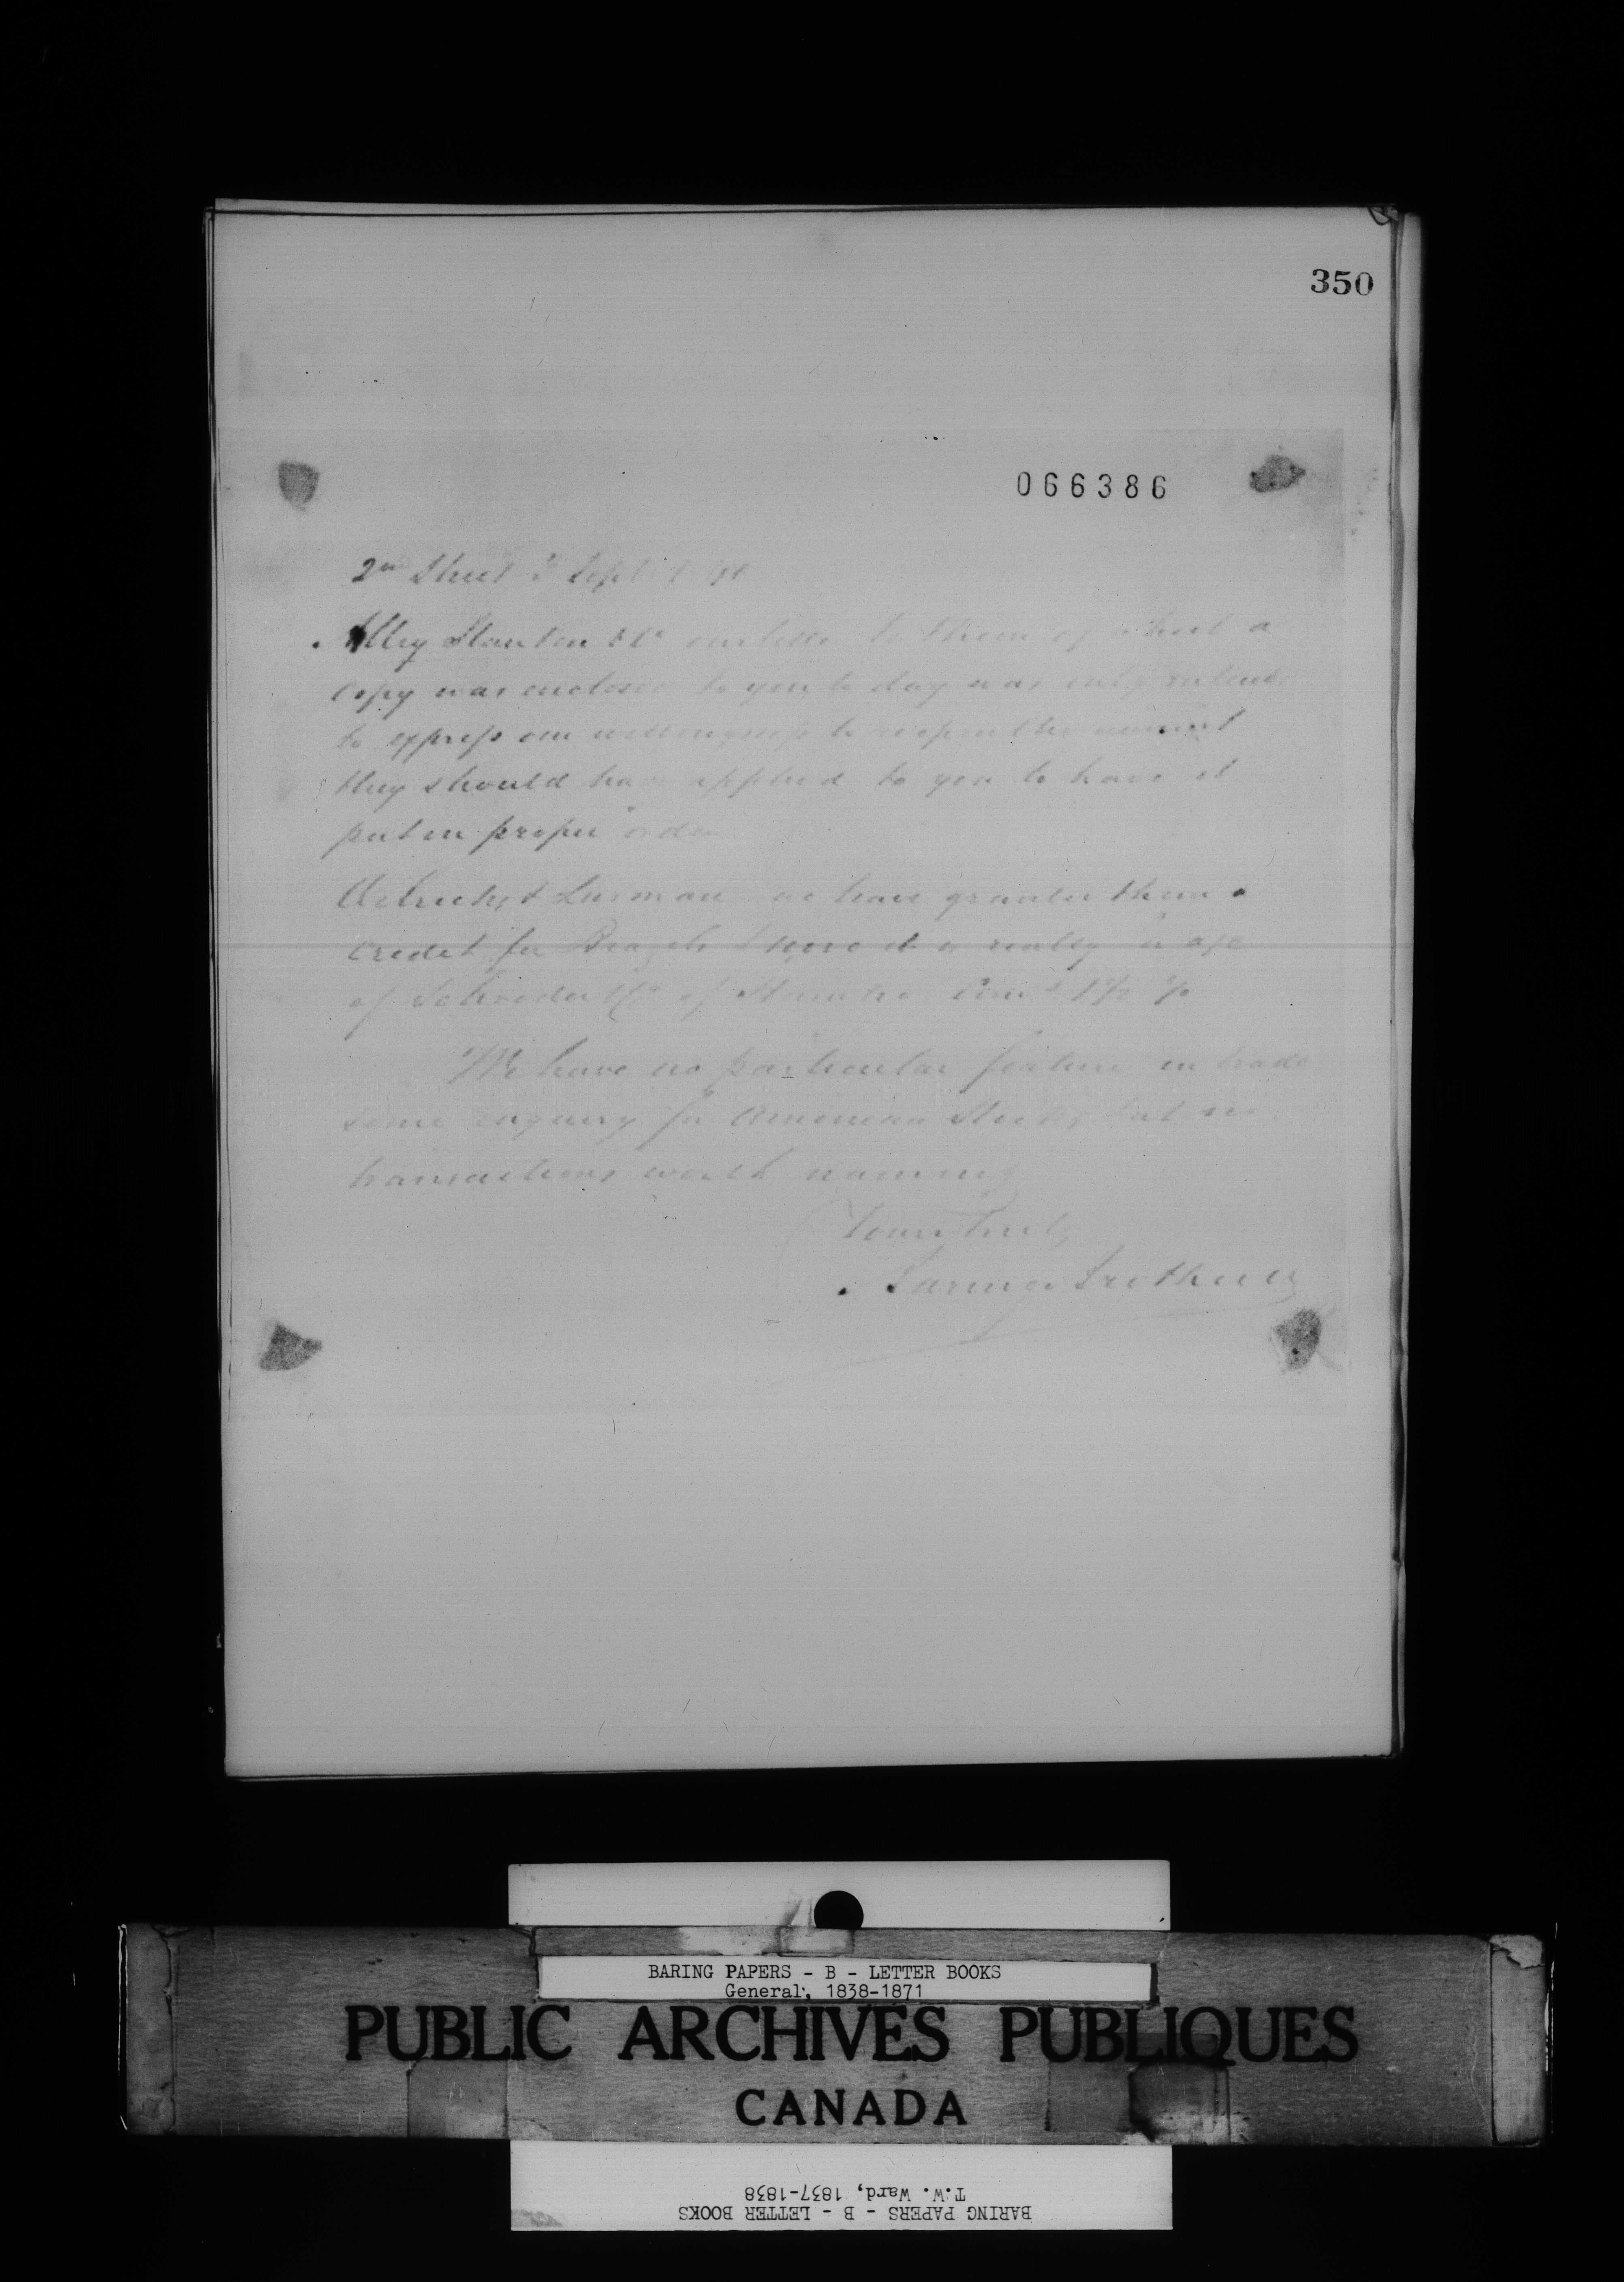 350
066386
2nd Sheet 3 Sept
Alley Stanton & Co our letter to them of which a
copy was enclosed to you to day was only
to express our willingness to reopen the account
they should have applied to you to have it
put in proper order
& Lurman we have granted them a
credit for it is really
of Schroder & Co of
We have no particular feature in trade
some enquiry for American Stocks but no
transactions worth naming
Yours truly
Baring Brothers
BARING PAPERS - B - LETTER BOOKS
General, 1838-1871
PUBLIC ARCHIVES PUBLIQUES
CANADA
T.W. Ward, 1837-1838
BARING PAPERS - B - LETTER BOOKS